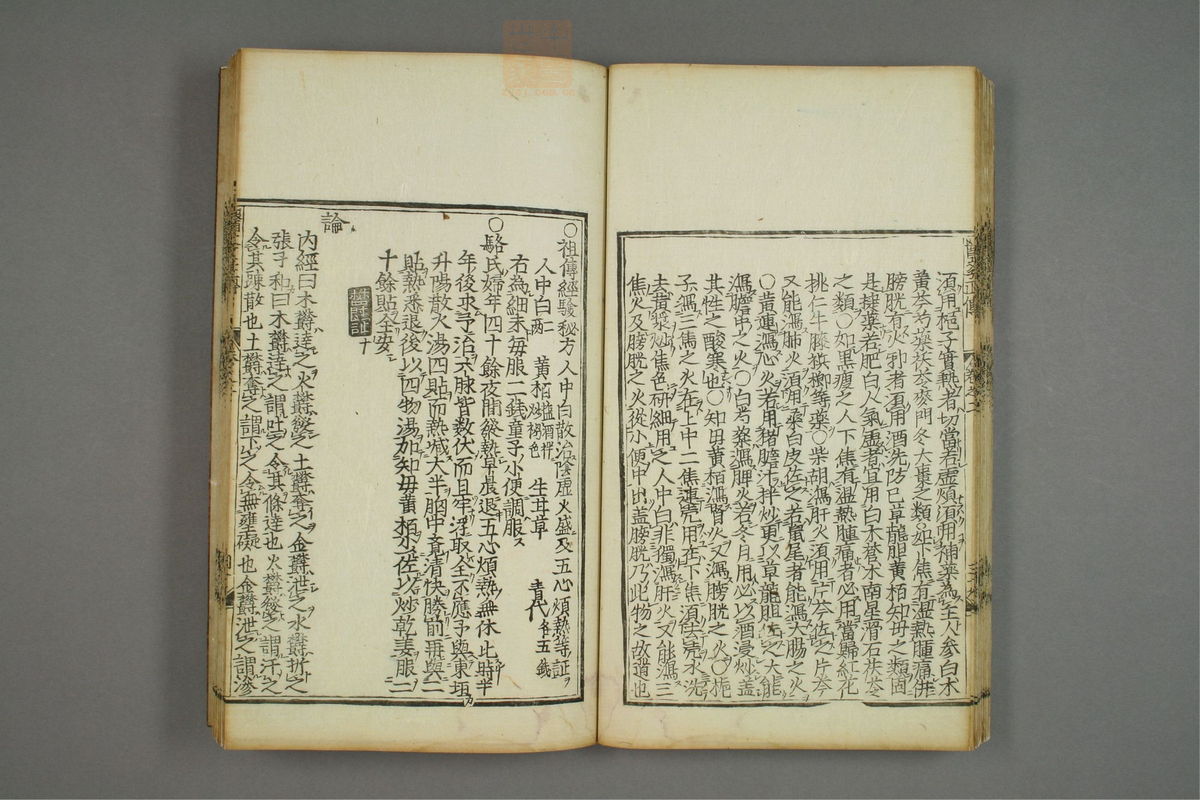 須用梔子實熱者切當若虛煩須用補藥為主人參白朮
黃芩芍藥茯苓麥門冬大棗之類如下焦有濕熱腫痛併
膀胱有火邪者須用酒洗防已草龍胆黃栢知毋之類固
是捷藥若肥白人氣虛者宜用白朮蒼朮南星滑石茯苓
之類○如黑瘦之人下焦有濕熱腫痛者必用當歸紅花
挑仁牛膝梹榔等藥○柴胡瀉肝火須用片芩佐之片芩
又能瀉肺火須用桑白皮佐之若鼠尾者能瀉大腸之火
○黃連瀉心火若用猪膽汁拌炒更以草龍胆佐之大能
瀉膽中之火○白芍藥瀉脾火若冬月用必以酒浸炒盖
其性之酸寒也○知毋黃栢瀉腎火又瀉膀胱之火○梔
子瀉三焦之火在上中二焦連壳用在下焦須去壳水洗
去黃漿炒焦色研細用之人中白非獨瀉肝火又能瀉三
焦火及膀胱之火從小便中出盖膀胱乃此物之故道也
○祖傳經驗秘方人中白散治陰虛火盛及五心煩熱等証
人中白二兩 黃栢鹽酒拌炒褐色 生甘草 青代各五錢
右為細末毎服二錢童子小便調服
○駱氏婦年四十餘夜間發熱早晨退五心煩熱無休止時半
年後求予治六脉皆数伏而且牢浮取全不應予與東垣
升陽散火湯四貼而熱减大半胸中竟清快勝前再與二
貼熱悉退後以四物湯加知毋黃栢少佐以炒乾姜服二
十餘貼全安
欝証 十
論
內經曰木欝達之火欝發之土欝奪之金欝泄之水欝折之
張子和曰木欝達之謂吐之令其條達也火欝發之謂汗之
令其踈散也土欝奪之謂下之令無壅礙也金欝泄之謂滲